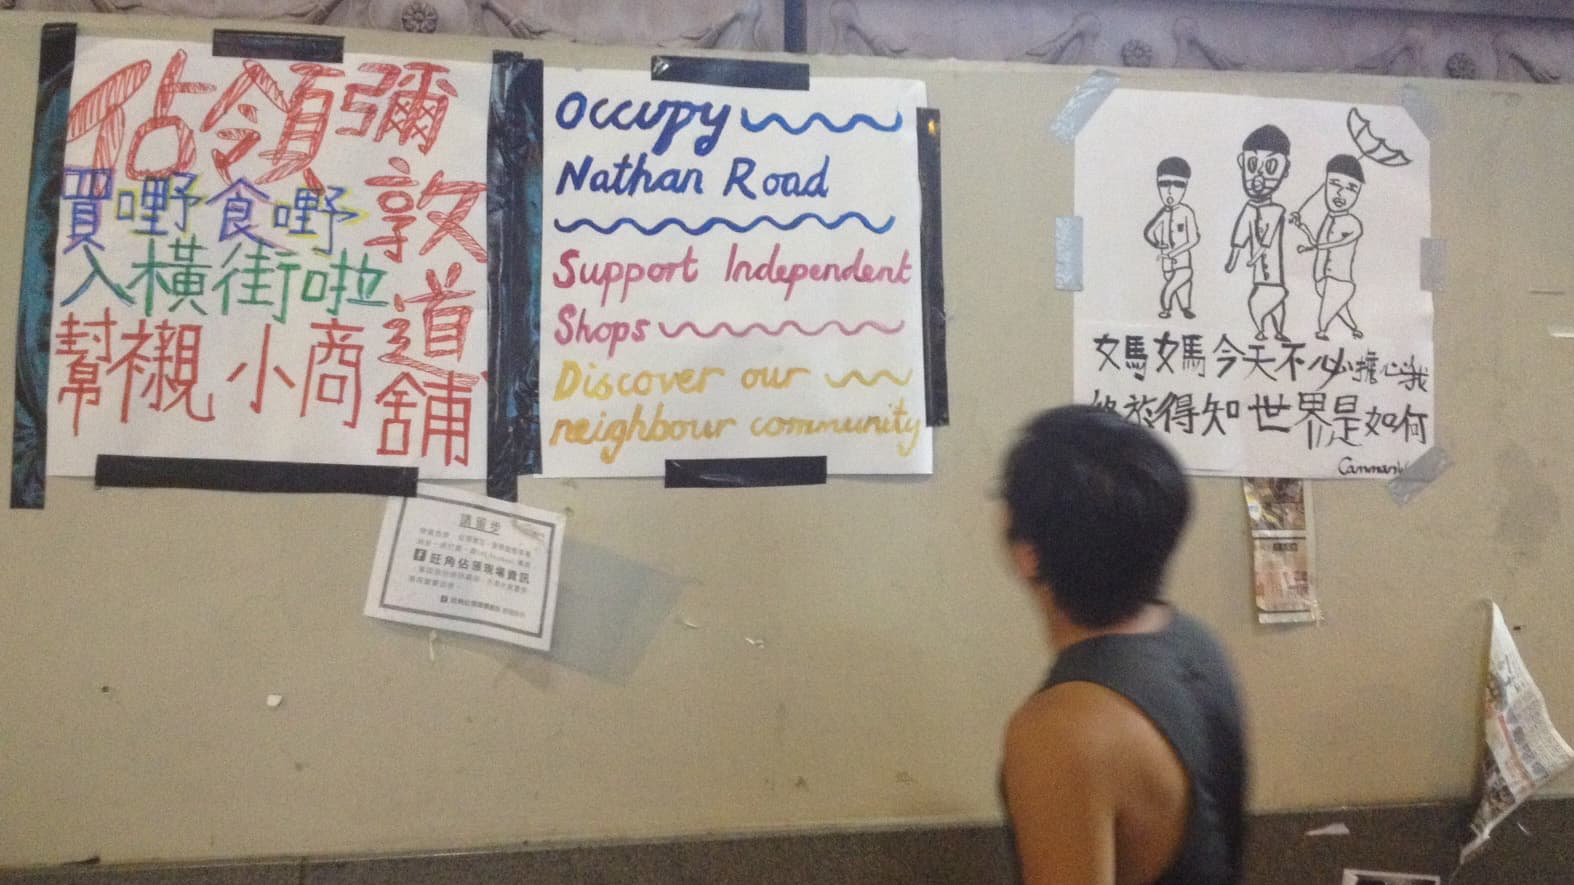 佔領彌敦道
買嘢食嘢
入橫街啦
幫襯小商舖
Occupy
Nathan Road
Support Independent
Shops
Discover our
neighbour community
媽媽今天不必擔心我
終於得知世界是如何
請留步
旺角佔領現場資訊